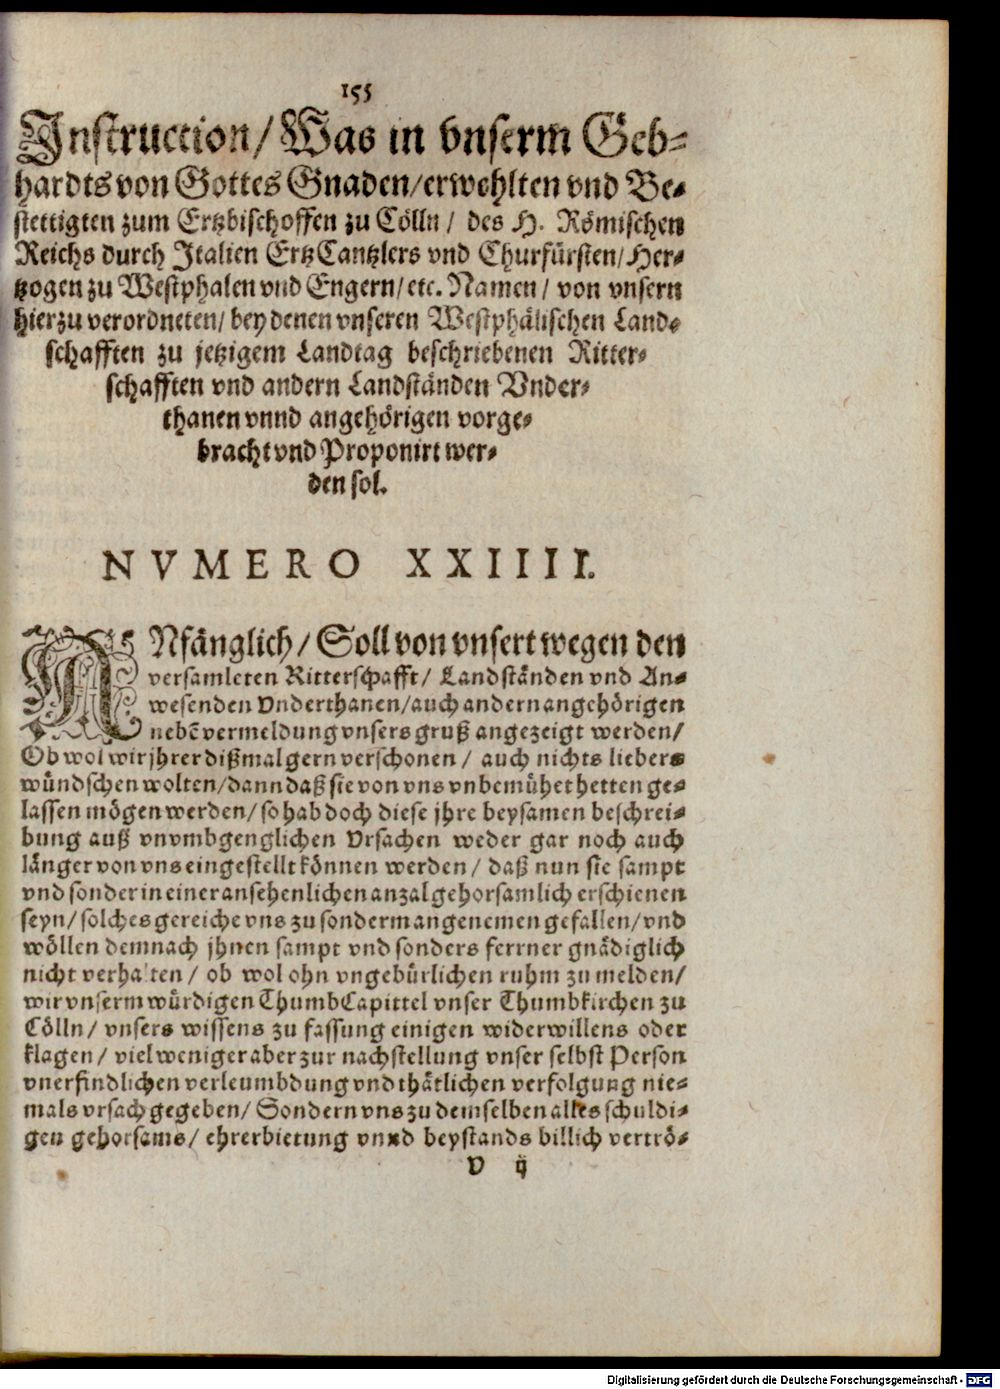 155
Instruction/ Was in vnserm Geb-
hardts von Gottes Gnaden/ erwehlten vnd Be-
stettigten zum Ertzbischoffen zu Cölln/ des H. Römischen
Reichs durch Italien ErtzCantzlers vnd Churfürsten/ Her-
tzogen zu Westphalen vnd Engern/ etc. Namen/ von vnsern
hierzu verordneten/ bey denen vnseren Westphälischen Land-
schafften zu jetzigem Landtag beschriebenen Ritter-
schafften vnd andern Landständen Vnder-
thanen vnnd angehörigen vorge-
bracht vnd Proponirt wer-
den sol.
NVMERO XXIIII.
ANfänglich/ Soll von vnsert wegen den
versamleten Ritterschafft/ Landständen vnd An-
wesenden Vnderthanen/ auch andern angehörigen
nebẽ vermeldung vnsers gruß angezeigt werden/
Ob wol wir jhrer dißmal gern verschonen/ auch nichts liebers
wündschen wolten/ dann daß sie von vns vnbemühet hetten ge-
lassen mögen werden/ so hab doch diese jhre beysamen beschrei-
bung auß vnvmbgenglichen Vrsachen weder gar noch auch
länger von vns eingestellt können werden/ daß nun sie sampt
vnd sonder in einer ansehenlichen anzal gehorsamlich erschienen
seyn/ solches gereiche vns zu sonderm angenemen gefallen/ vnd
wöllen demnach jhnen sampt vnd sonders ferrner gnädiglich
nicht verhalten/ ob wol ohn vngebürlichen ruhm zu melden/
wir vnserm würdigen ThumbCapittel vnser Thumbkirchen zu
Cölln/ vnsers wissens zu fassung einigen widerwillens oder
klagen/ viel weniger aber zur nachstellung vnser selbst Person
vnerfindlichen verleumbdung vnd thätlichen verfolgung nie-
mals vrsach gegeben/ Sondern vns zu demselben alles schuldi-
gen gehorsams/ ehrerbietung vnnd beystands billich verträ-
V ij
Digitalisierung gefördert durch die Deutsche Forschungsgemeinschaft - DFG